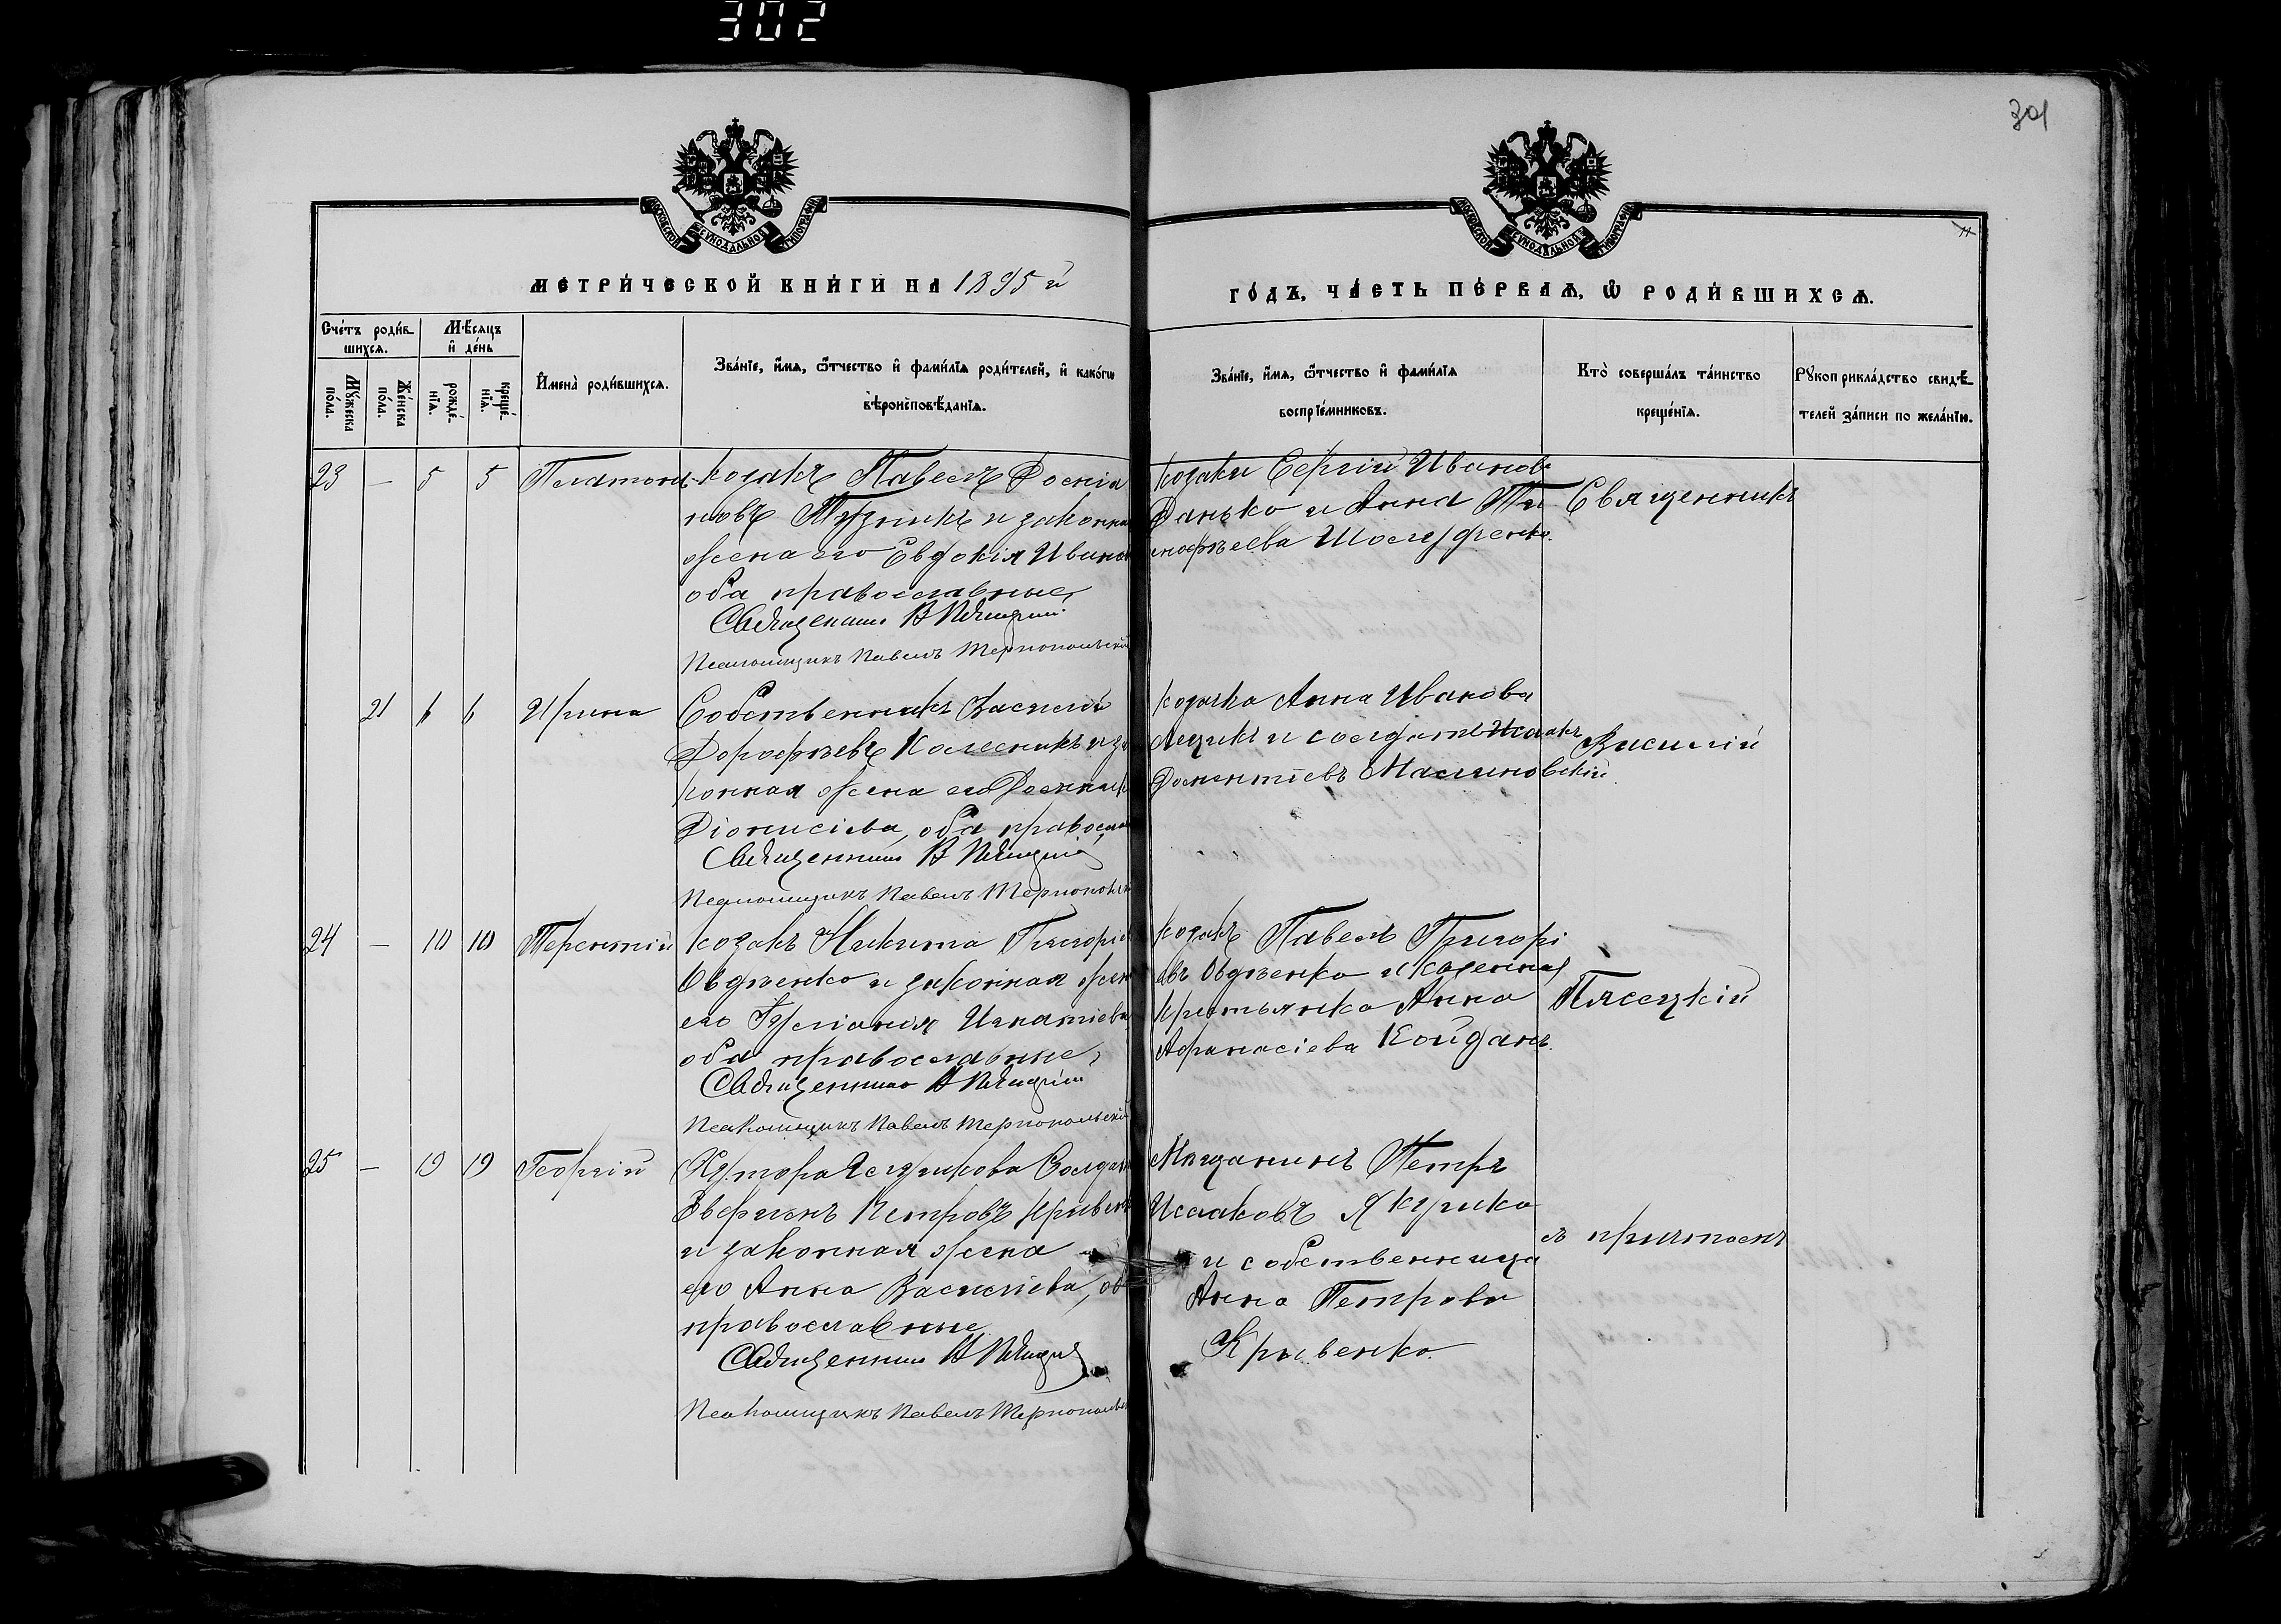 302
301
11
МОСКОВСКОЙ СѴНОДАЛЬНОЙ ТИПОГРАФІИ
МОСКОВСКОЙ СѴНОДАЛЬНОЙ ТИПОГРАФІИ
МЕТРИ́ЧЕСКОЙ КНИ́ГИ НА 1895 й
ГО́ДЪ, ЧА́СТЬ ПЕ́РВАѦ, Ѿ РОДИ́ВШИХСѦ.
Сче́тъ роди́в-
шихсѧ.
Мѣ́сѧцъ
и҆ де́нь
Мꙋ́жеска
по́ла.
Же́нска
по́ла.
рожде́-
нїѧ.
креще́-
нїѧ.
И҆мена̀ роди́вшихсѧ.
Зва́нїе, и҆́мѧ, ѻ҆́тчество и҆ фами́лїѧ роди́телей, и҆ како́гѡ
вѣроисповѣ́данїѧ.
Зва́нїе, и҆́мѧ, ѻ҆́тчество и҆ фами́лїѧ
воспрїе́мниковъ.
Кто̀ соверша́лъ та́инство
креще́нїѧ.
Рꙋкоприкла́дство свидѣ́-
телей за́писи по жела́нїю.
23 — 5 5 Платонъ
козакъ Павелъ
и законна
жена его Евдокія Иванов
оба православные,
Священникъ В Пясецкій
Псаломщикъ Павелъ Тернопольскій
козаки Сергій Иванов
Данько и Анна Ти
моѳеева
Священникъ
21 6 6 Ирина
Собственникъ Василій
Дороѳеевъ Колесникъ и за
конная жена его
Діонисіева, оба правосла
Священникъ В Пясецкій
Псаломщикъ Павелъ Тернополь
козачка Анна Иванова
и солдатъ Исаакъ
Доментіевъ Малиновскій.
Василій
24 — 10 10 Терентій
козакъ Никита Григоріе
Овдѣенко и законная жен
его Іуліанія Игнатіева
оба православные,
Священникъ В Пясецкій
Псаломщикъ Павелъ Тернопольскій
козакъ Павелъ Григорі
евъ Овдѣенко и казенная
крестьянка Анна
Аѳанасіева Койданъ.
Пясецкій
25 — 19 19 Георгій
Хутора Солда
Петровъ Кривен
и законная жена
его Анна Василіева, об
православные
Священникъ В Пясецкій
Псаломщикъ Павелъ Тернополь
Мѣщанинъ Петръ
Исааковъ Якушко
и собственница
Анна Петрова
Кривенко.
съ причтомъ